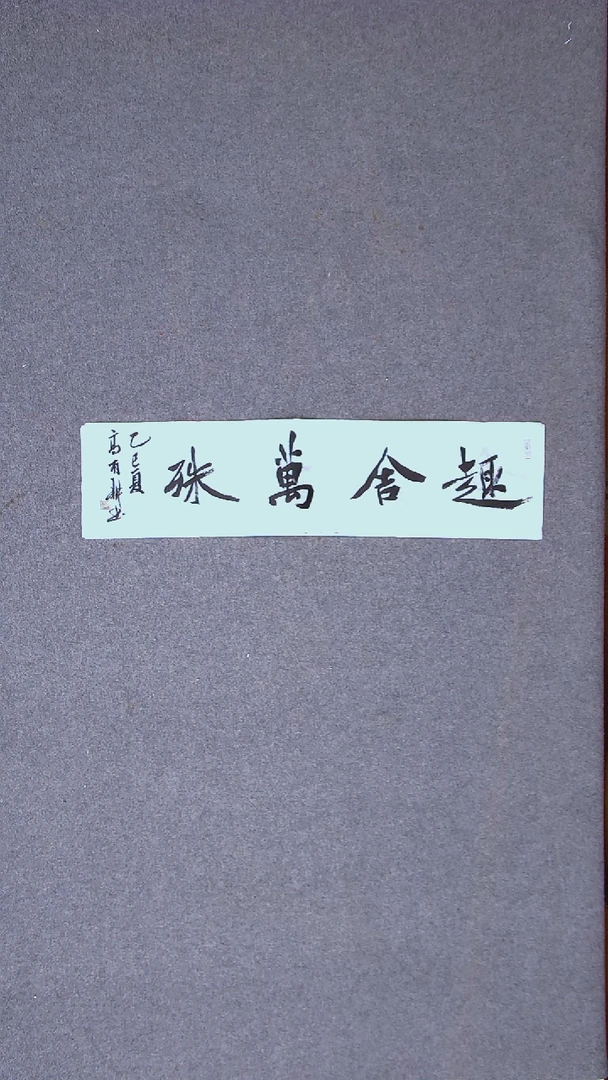 趣舍萬殊
乙巳夏
高有耕書